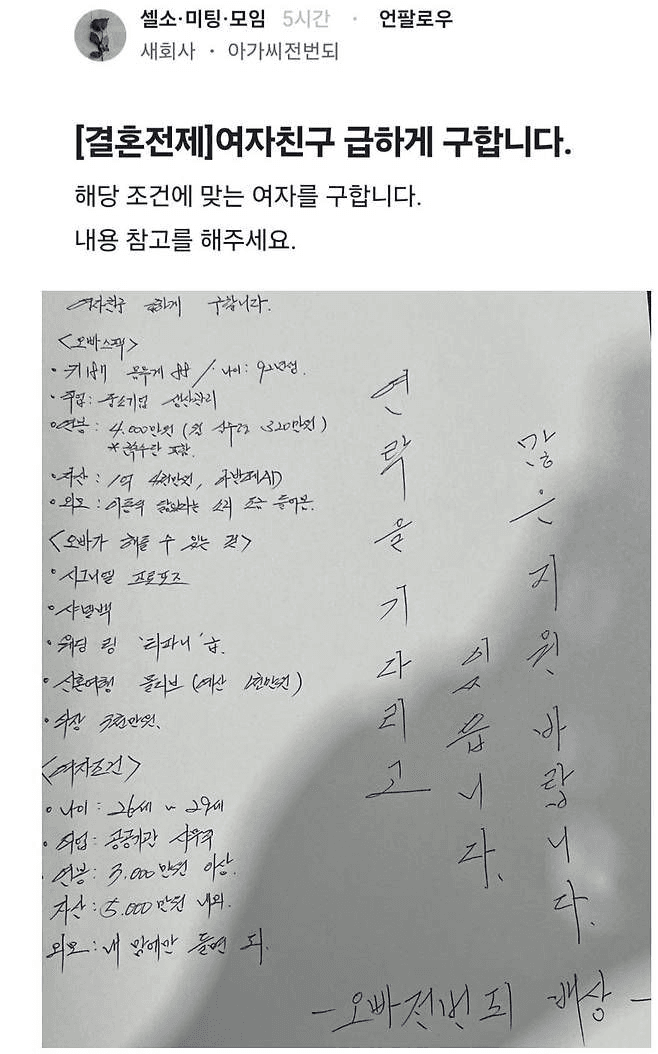 셀소·미팅·모임 5시간 · 언팔로우
새회사 · 아가씨전번되
[결혼전제]여자친구 급하게 구합니다.
해당 조건에 맞는 여자를 구합니다.
내용 참고를 해주세요.
여자친구 급하게 구합니다.
<오빠스펙>
· 키 몸무게 / 나이: 92년생.
· 직업: 중소기업 생산관리
· 연봉: 4,000만원 (월 실수령 320만원)
* 포함.
· 자산: 1억 4천만원, 아반떼AD
· 외모: 이동욱 닮았다는 소리 조금 들어봄.
<오빠가 해줄 수 있는 것>
· 시그니엘 프로포즈
· 샤넬백
· 웨딩 링 '티파니' 급.
· 신혼여행 몰디브 (예산 1천만원)
· 5천만원.
<여자조건>
· 나이: 26세 ~ 29세
· 직업: 공공기관 사무직
· 연봉: 3,000만원 이상.
자산: 5,000만원 내외.
외모: 내 맘에만 들면 되.
연락을 기다리고
있읍니다.
많은 지원 바랍니다.
- 오빠전번되 배상 -